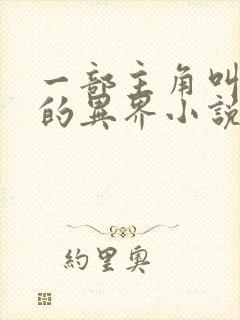 一部主角叫
的異界小說
約里奧